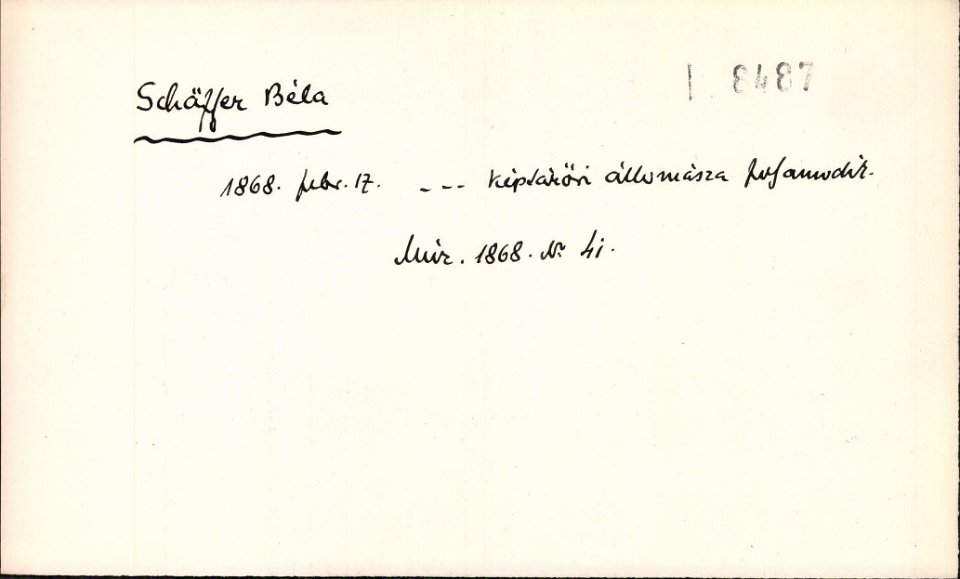 Schäffer Béla
| 8487
1868. febr. 17. --- képtárőri állomásra folyamodik.
Múz. 1868. Nr 41.